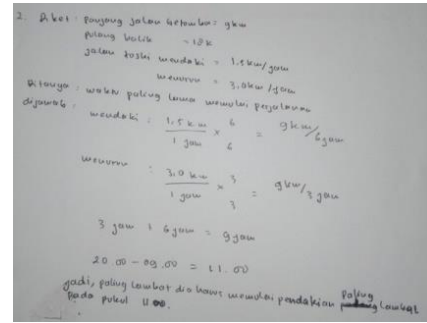 2. Diket : panjang jalan Gotemba : 9km
pulang balik = 18k
jalan toshi mendaki = 1,5km/jam
menurun = 3,0km/jam
Ditanya : waktu paling lama memulai perjalanan
dijawab :
mendaki : 1,5 km / 1 jam × 6 / 6 = 9km/6jam
menurun : 3,0 km / 1 jam × 3 / 3 = 9km/3 jam
3 jam + 6 jam = 9 jam
20.00 - 09.00 = 11.00
jadi, paling lambat dia harus memulai pendakian paling lambat
pada pukul 11.00.